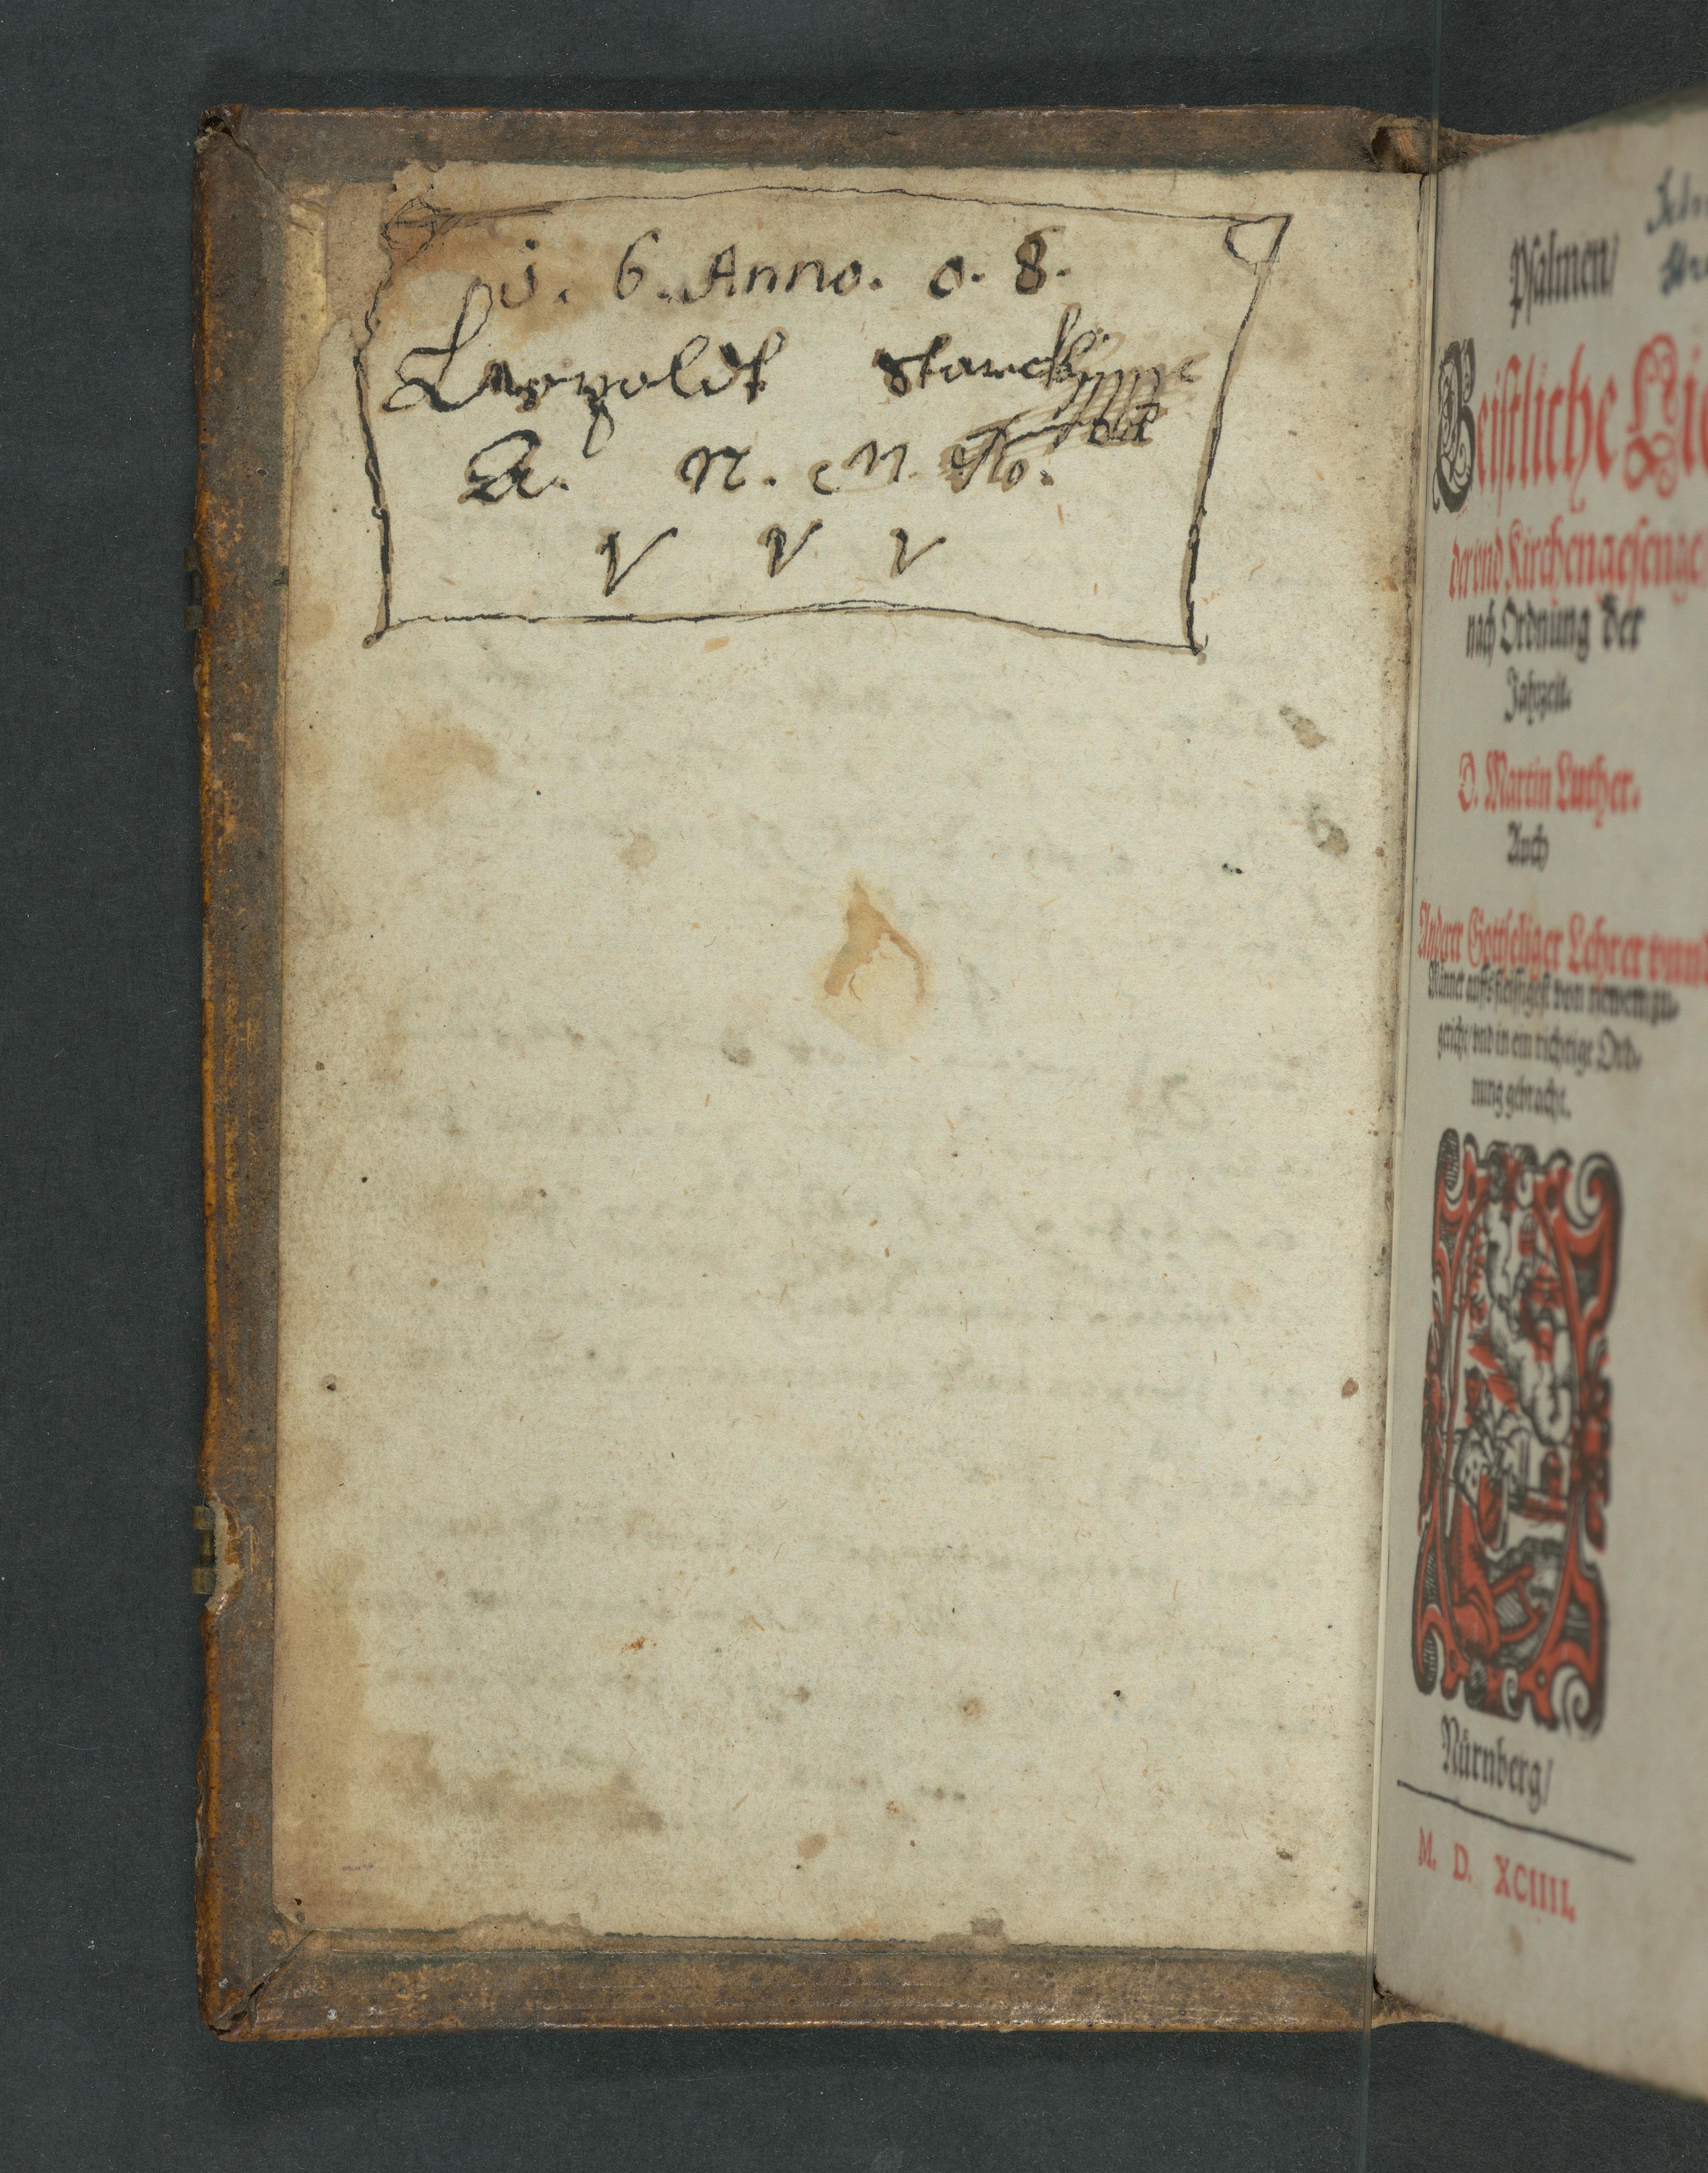 i. 6. Anno. 0. 8.
Leopoldt Starck
A. N. N. No.
V V V
Psalmen/
Geistliche Lie
der vnd Kirchengesenge
nach Ordnung der
Jahrzeit.
D. Martin Luther.
Auch
Anderer Gottseliger Lehrer vnnd
Männer auffs fleissigest von newem zu-
gericht/ vnd in ein richtige Ord-
nung gebracht.
Nürnberg/
M. D. XCIIII.